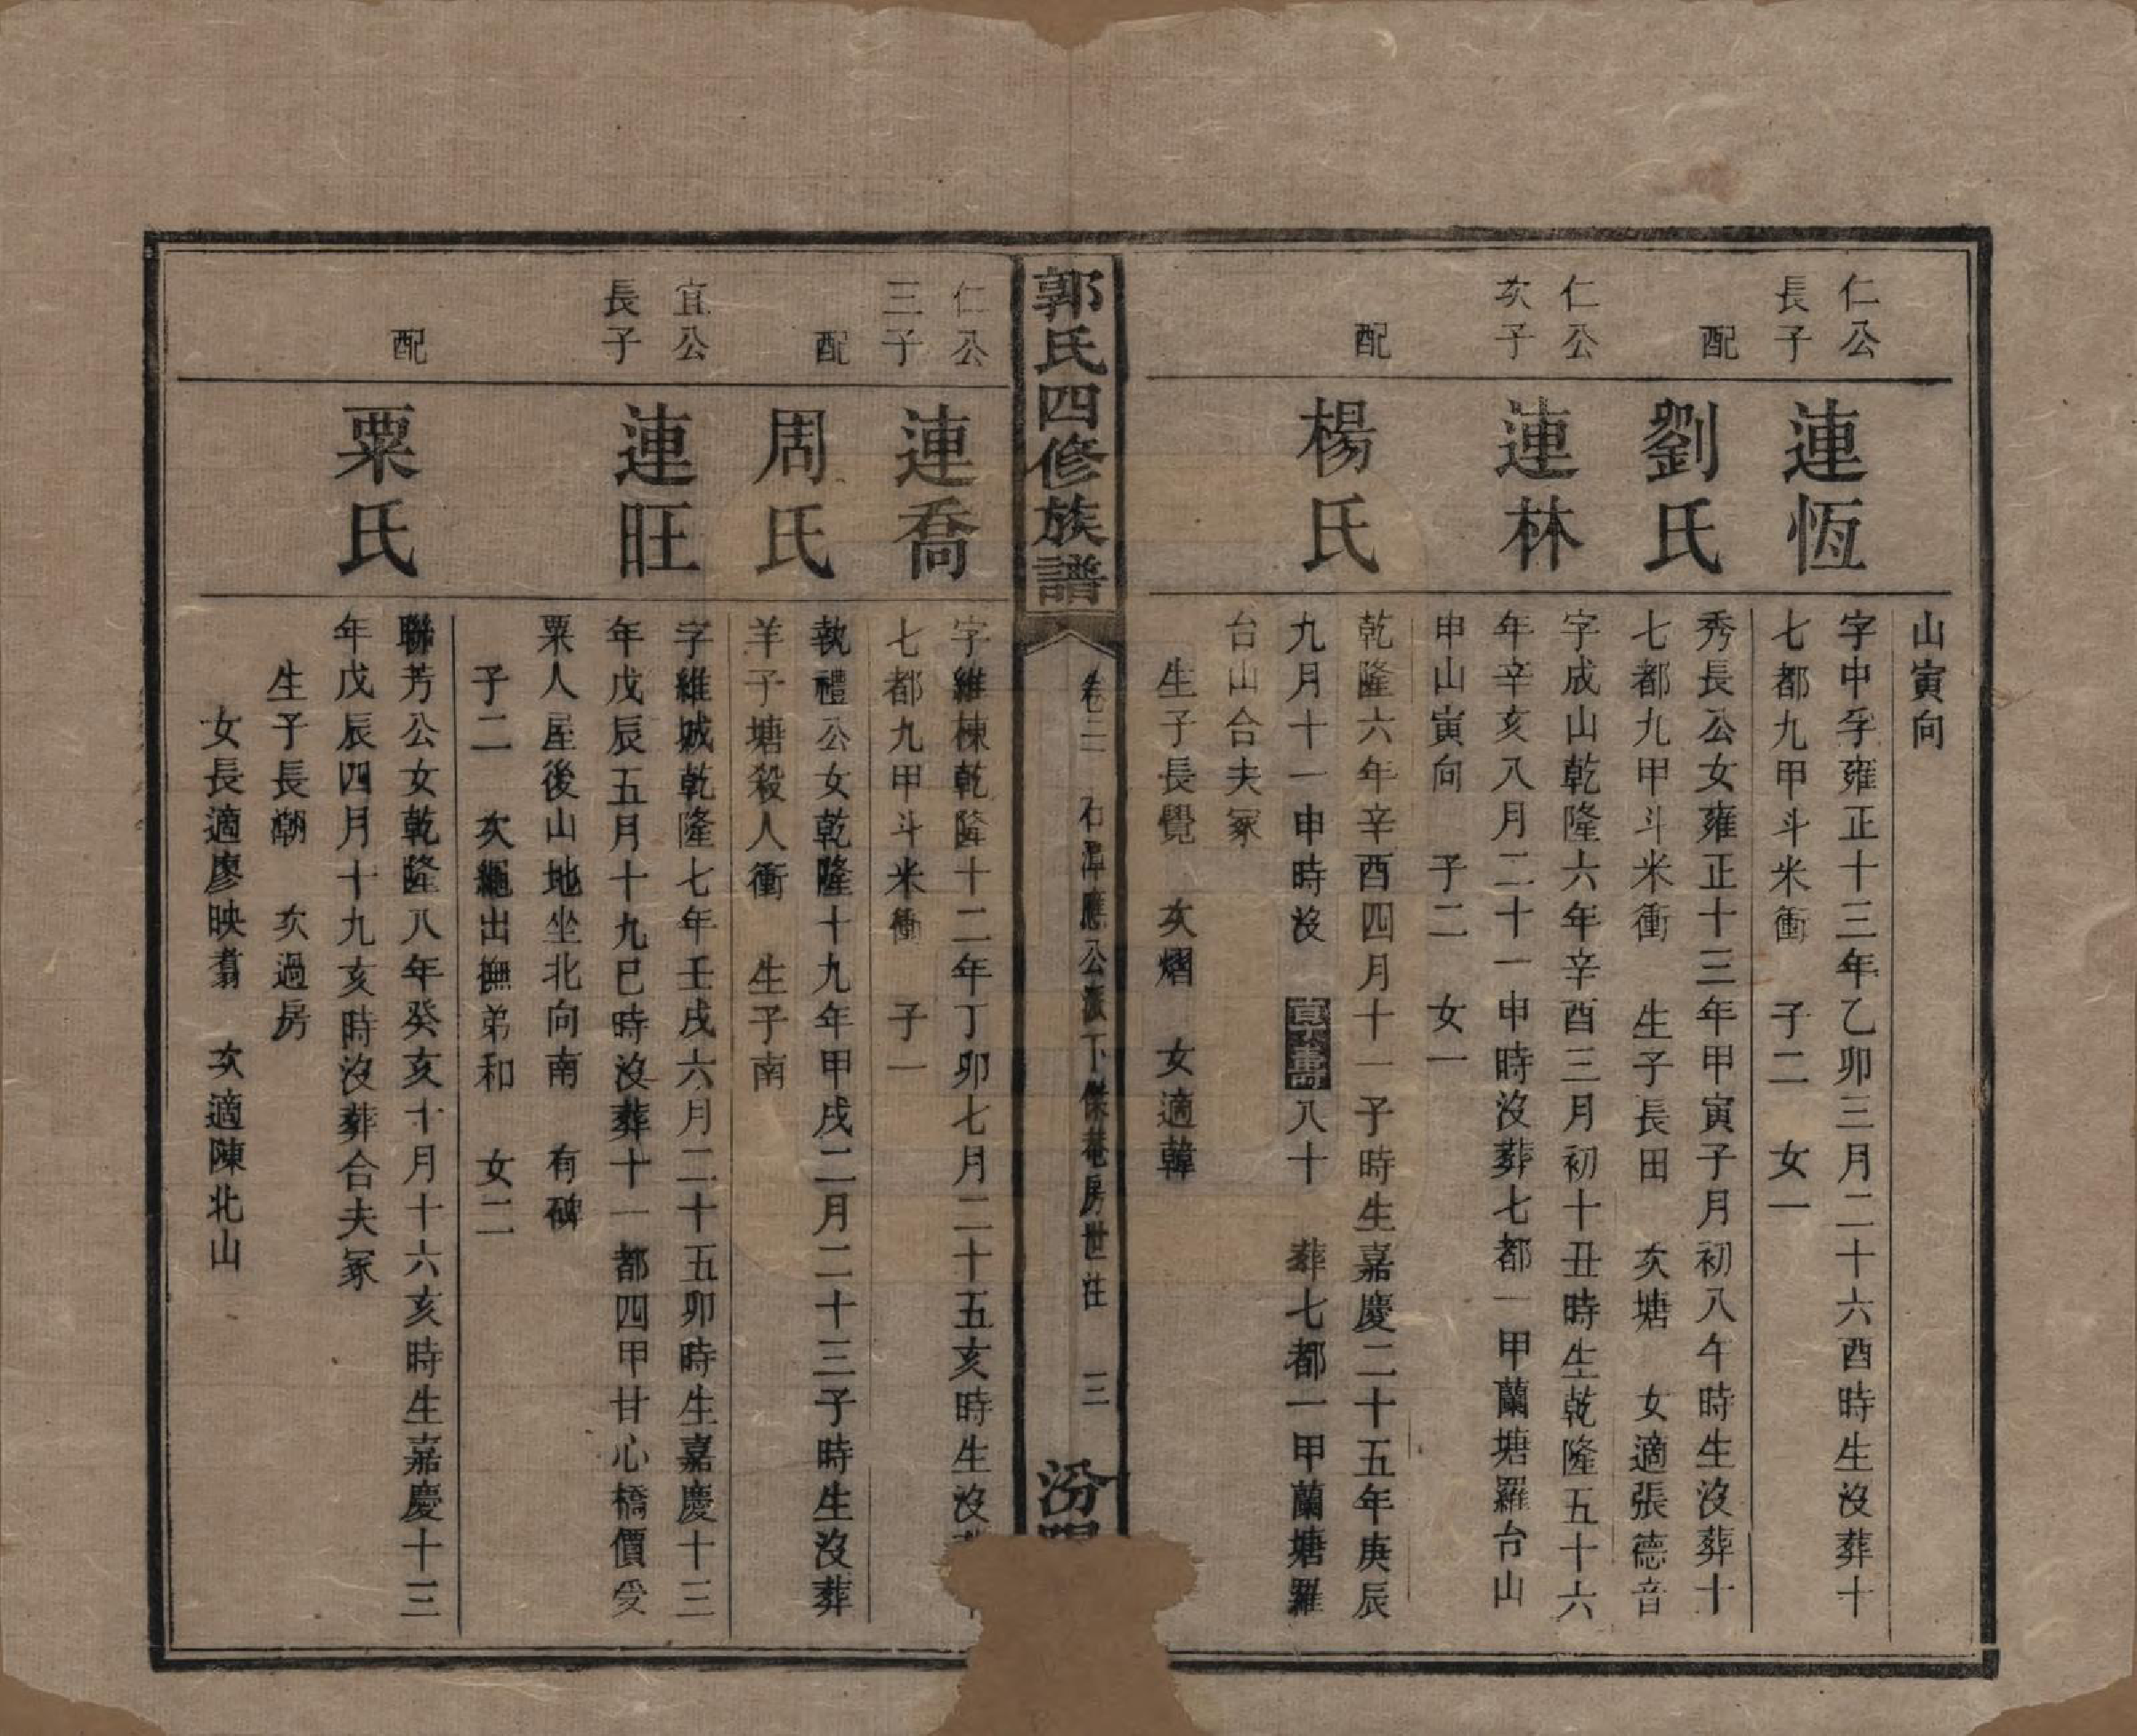 山寅向
仁公長子
連恆
字中孚雍正十三年乙卯三月二十六酉時生沒葬十
七都九甲斗米衝　子二　女一
配
劉氏
秀長公女雍正十三年甲寅子月初八午時生沒葬十
七都九甲斗米衝　生子長田　次塘　女適張德音
仁公次子
連林
字成山乾隆六年辛酉三月初十丑時生乾隆五十六
年辛亥八月二十一申時沒葬七都一甲蘭塘羅台山
申山寅向　子二　女一
配
楊氏
乾隆六年辛酉四月十一子時生嘉慶二十五年庚辰
九月十一申時沒　壽八十　葬七都一甲蘭塘羅
台山合夫冢
生子長覺　次熠　女適韓
郭氏四修族譜
卷三　石潭應公派下傑菴房世注　三
汾陽
仁公三子
連喬
字維棟乾隆十二年丁卯七月二十五亥時生沒
七都九甲斗米衝　子一
配
周氏
執禮公女乾隆十九年甲戌二月二十三子時生沒葬
羊子塘殺人衝　生子南
宜公長子
連旺
字維城乾隆七年壬戌六月二十五卯時生嘉慶十三
年戊辰五月十九巳時沒葬十一都四甲甘心橋價受
粟人屋後山地坐北向南　有碑
子二　次繩出撫弟和　女二
配
粟氏
聯芳公女乾隆八年癸亥十月十六亥時生嘉慶十三
年戊辰四月十九亥時沒葬合夫冢
生子長潮　次過房
女長適廖映翥　次適陳北山